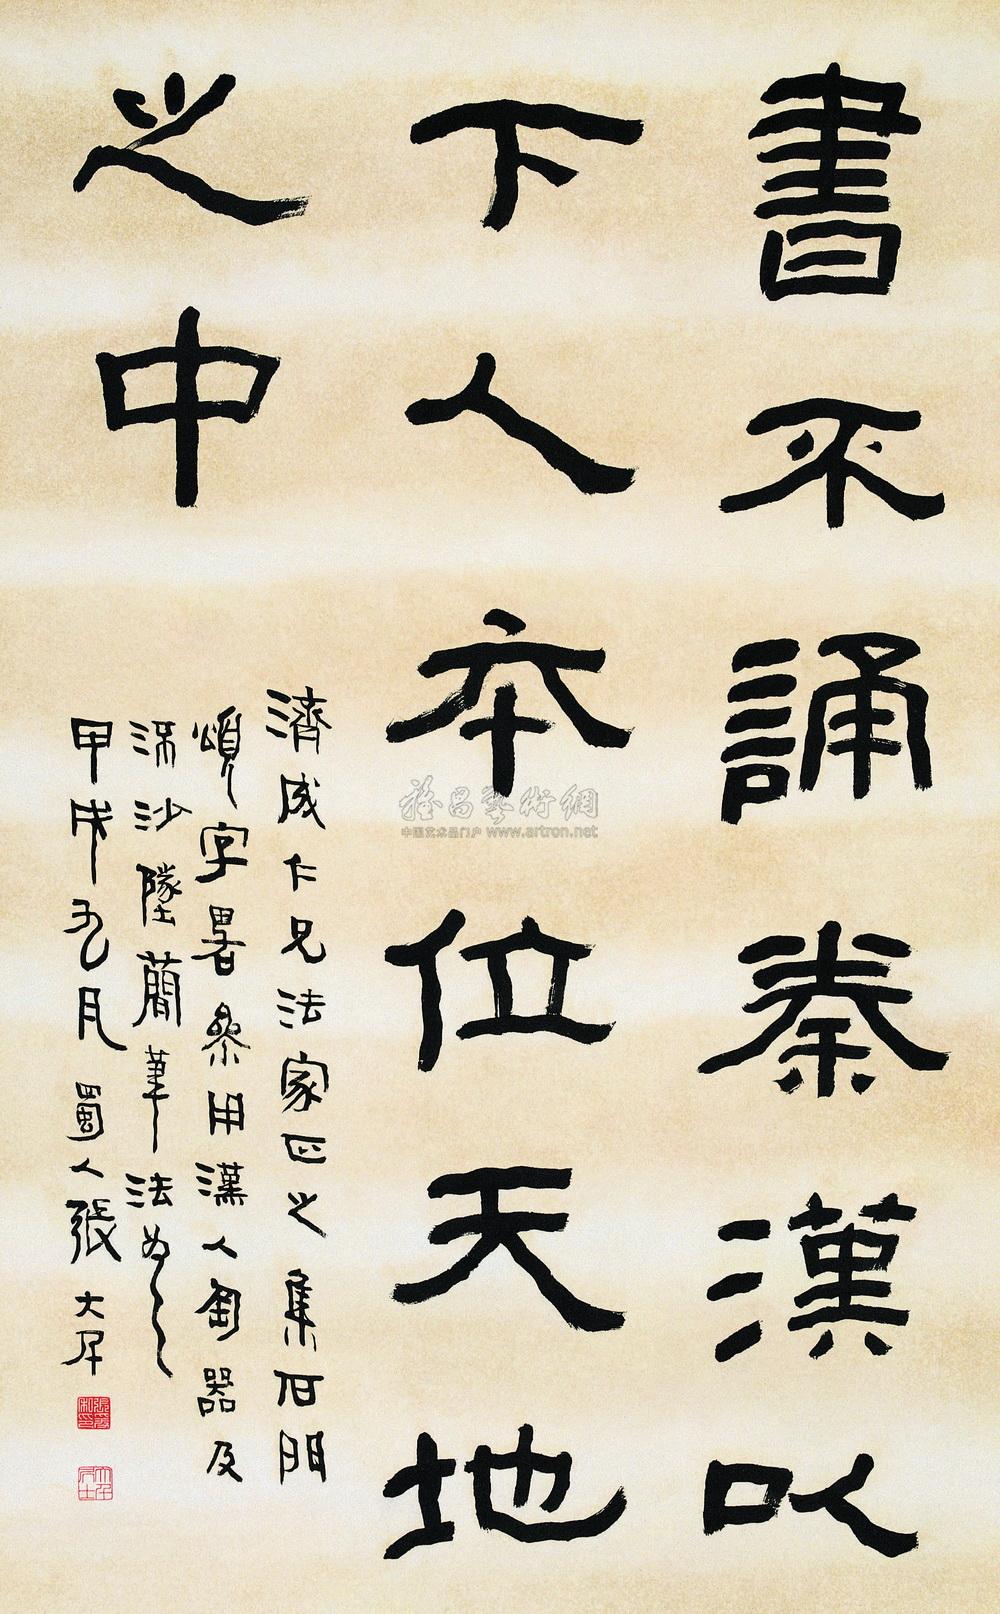 書不誦秦漢以
下人卒位天地
之中
濟成仁兄法家正之集石門
頌字畧參用漢人匋器及
流沙墜簡筆法為之
甲戌九月蜀人張大千
雅昌藝術網
中国艺术品门户 www.artron.net